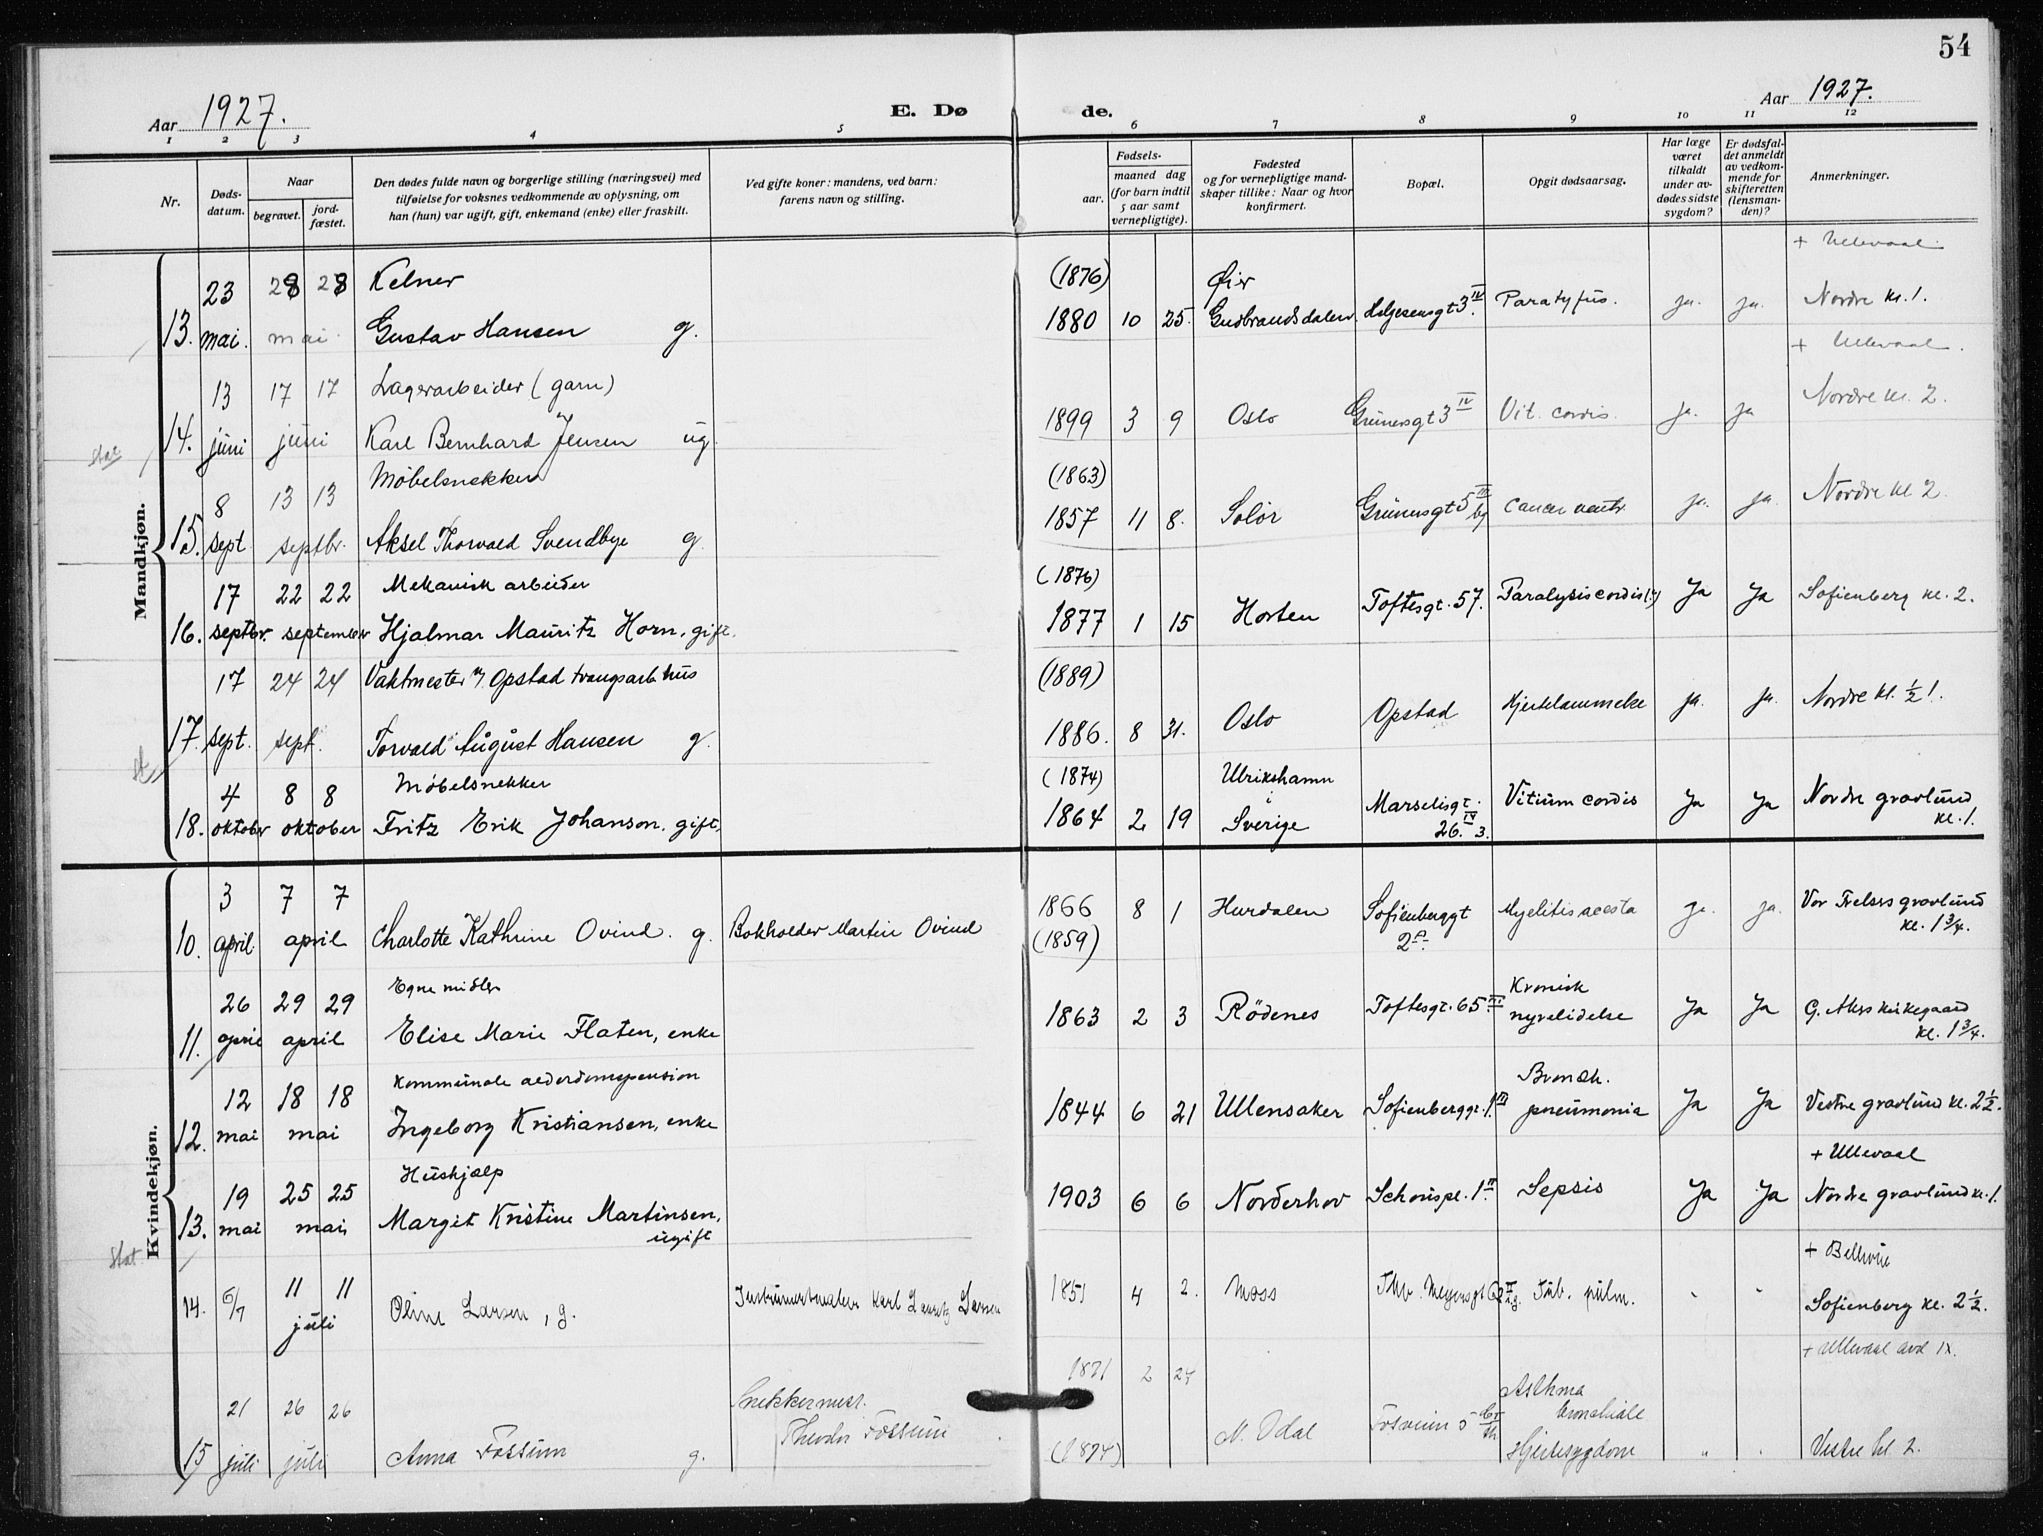 54
Aar 1927.
E. Dø
de.
Aar 1927.
1 2 3 4 5 6 7 8 9 10 11 12
Nr.
Døds-
datum.
Naar
begravet.
jord-
fæstet.
Den dødes fulde navn og borgerlige stilling (næringsvei) med
tilføielse for voksnes vedkommende av oplysning, om
han (hun) var ugift, gift, enkemand (enke) eller fraskilt.
Ved gifte koner: mandens, ved barn:
farens navn og stilling.
Fødsels-
aar.
maaned dag
(for barn indtil
5 aar samt
vernepligtige).
Fødested
og for vernepligtige mand-
skaper tillike: Naar og hvor
konfirmert.
Bopæl.
Opgit dødsaarsag.
Har læge
været
tilkaldt
under av-
dødes sidste
sygdom?
Er dødsfal-
det anmeldt
av vedkom-
mende for
skifteretten
(lensman-
den)?
Anmerkninger.
Mandkjøn.
+ Ullevaal.
23 28 28 Kelner (1876) Øier
13. mai. mai Gustav Hansen g. 1880 10 25. Gudbrandsdalen. Helgesensgt 3 IV. Paratyfus. ja. ja. Nordre kl. 1.
+ Ullevaal.
13 17 17 Lagerarbeider (garn)
Stat 14. juni juni Karl Bernhard Jensen ug. 1899 3 9 Oslo Grünersgt 3 IV Vit. cordis. ja. ja Nordre kl. 2.
8 13 13 Møbelsnekker (1863)
15. sept. septbr. Aksel Thorvald Svendbye g. 1857 11 8. Solør Grünersgt 5 III bg Cancer ventr. ja. ja. Nordre kl 2.
17 22 22 Mekanisk arbeider (1876)
16. septbr. september Hjalmar Mauritz Horn, gift. 1877 1 15 Horten Toftesgt. 57. Paralysis cordis (?) Ja Ja Sofienberg kl. 2.
17 24 24 Vaktmester v/ Opstad tvangsarb hus (1889)
St 17. sept. sept. Torvald August Hansen g. 1886. 8 31. Oslo Opstad Hjertelammelse ja. ja. Nordre kl. ½ 1.
4 8 8 Møbelsnekker (1874) Ulrikshamn
i
18. oktober oktober Fritz Erik Johanson, gift. 1864 2 19 Sverige Marselisgt. 26. IV 3. Vitium cordis Ja Ja Nordre gravlund kl. 1.
Kvindekjøn.
3 7 7
10. april. april Charlotte Kathrine Ovind. g. Bokholder Martin Ovind 1866 (1859) 8 1 Hurdalen Sofienberggt 2 Myelitis acosta ja. ja. Vor Frelsers gravlund kl. 1 ¾.
26 29 29 Egne midler
11. april april Elise Marie Flaten, enke 1863 2 3 Rödenes Toftesgt. 65 III. Kronisk nyrelidelse Ja Ja G. Akers kirkegaard kl. 1 ¾.
12 18 18 Kommunale alderdomspension
12. mai mai Ingeborg Kristiansen, enke 1844 6 21 Ullensaker Sofienberggt. 1 III Bronch. pneumonia Ja Ja Vestre gravlund kl. 2 ½.
+ Ullevaal
19 25 25 Hushjælp
13. mai mai, Margit Kristine Martinsen, ugift 1903 6 6 Norderhov Schouspl. 1 II. Sepsis Ja Ja Nordre gravlund kl. 1.
Stat
+ Bellevue
14. 6/7 11 11 juli Oline Larsen, g. Instrumentmaker Karl Lauritz Larsen 1851 4 2. Moss Thv. Meyersgt Tub. pulm. " " Sofienberg kl. 2 ½.
+ Ullevaal avd IX.
21 26 26 Snekkermest. 1871 2 24 Asthma bronchiale
15 juli juli Anna Fossum g. Theodor Fossum (1874) N. Odal Fosveien 5 Hjertesygdom " " Vestre kl. 2.